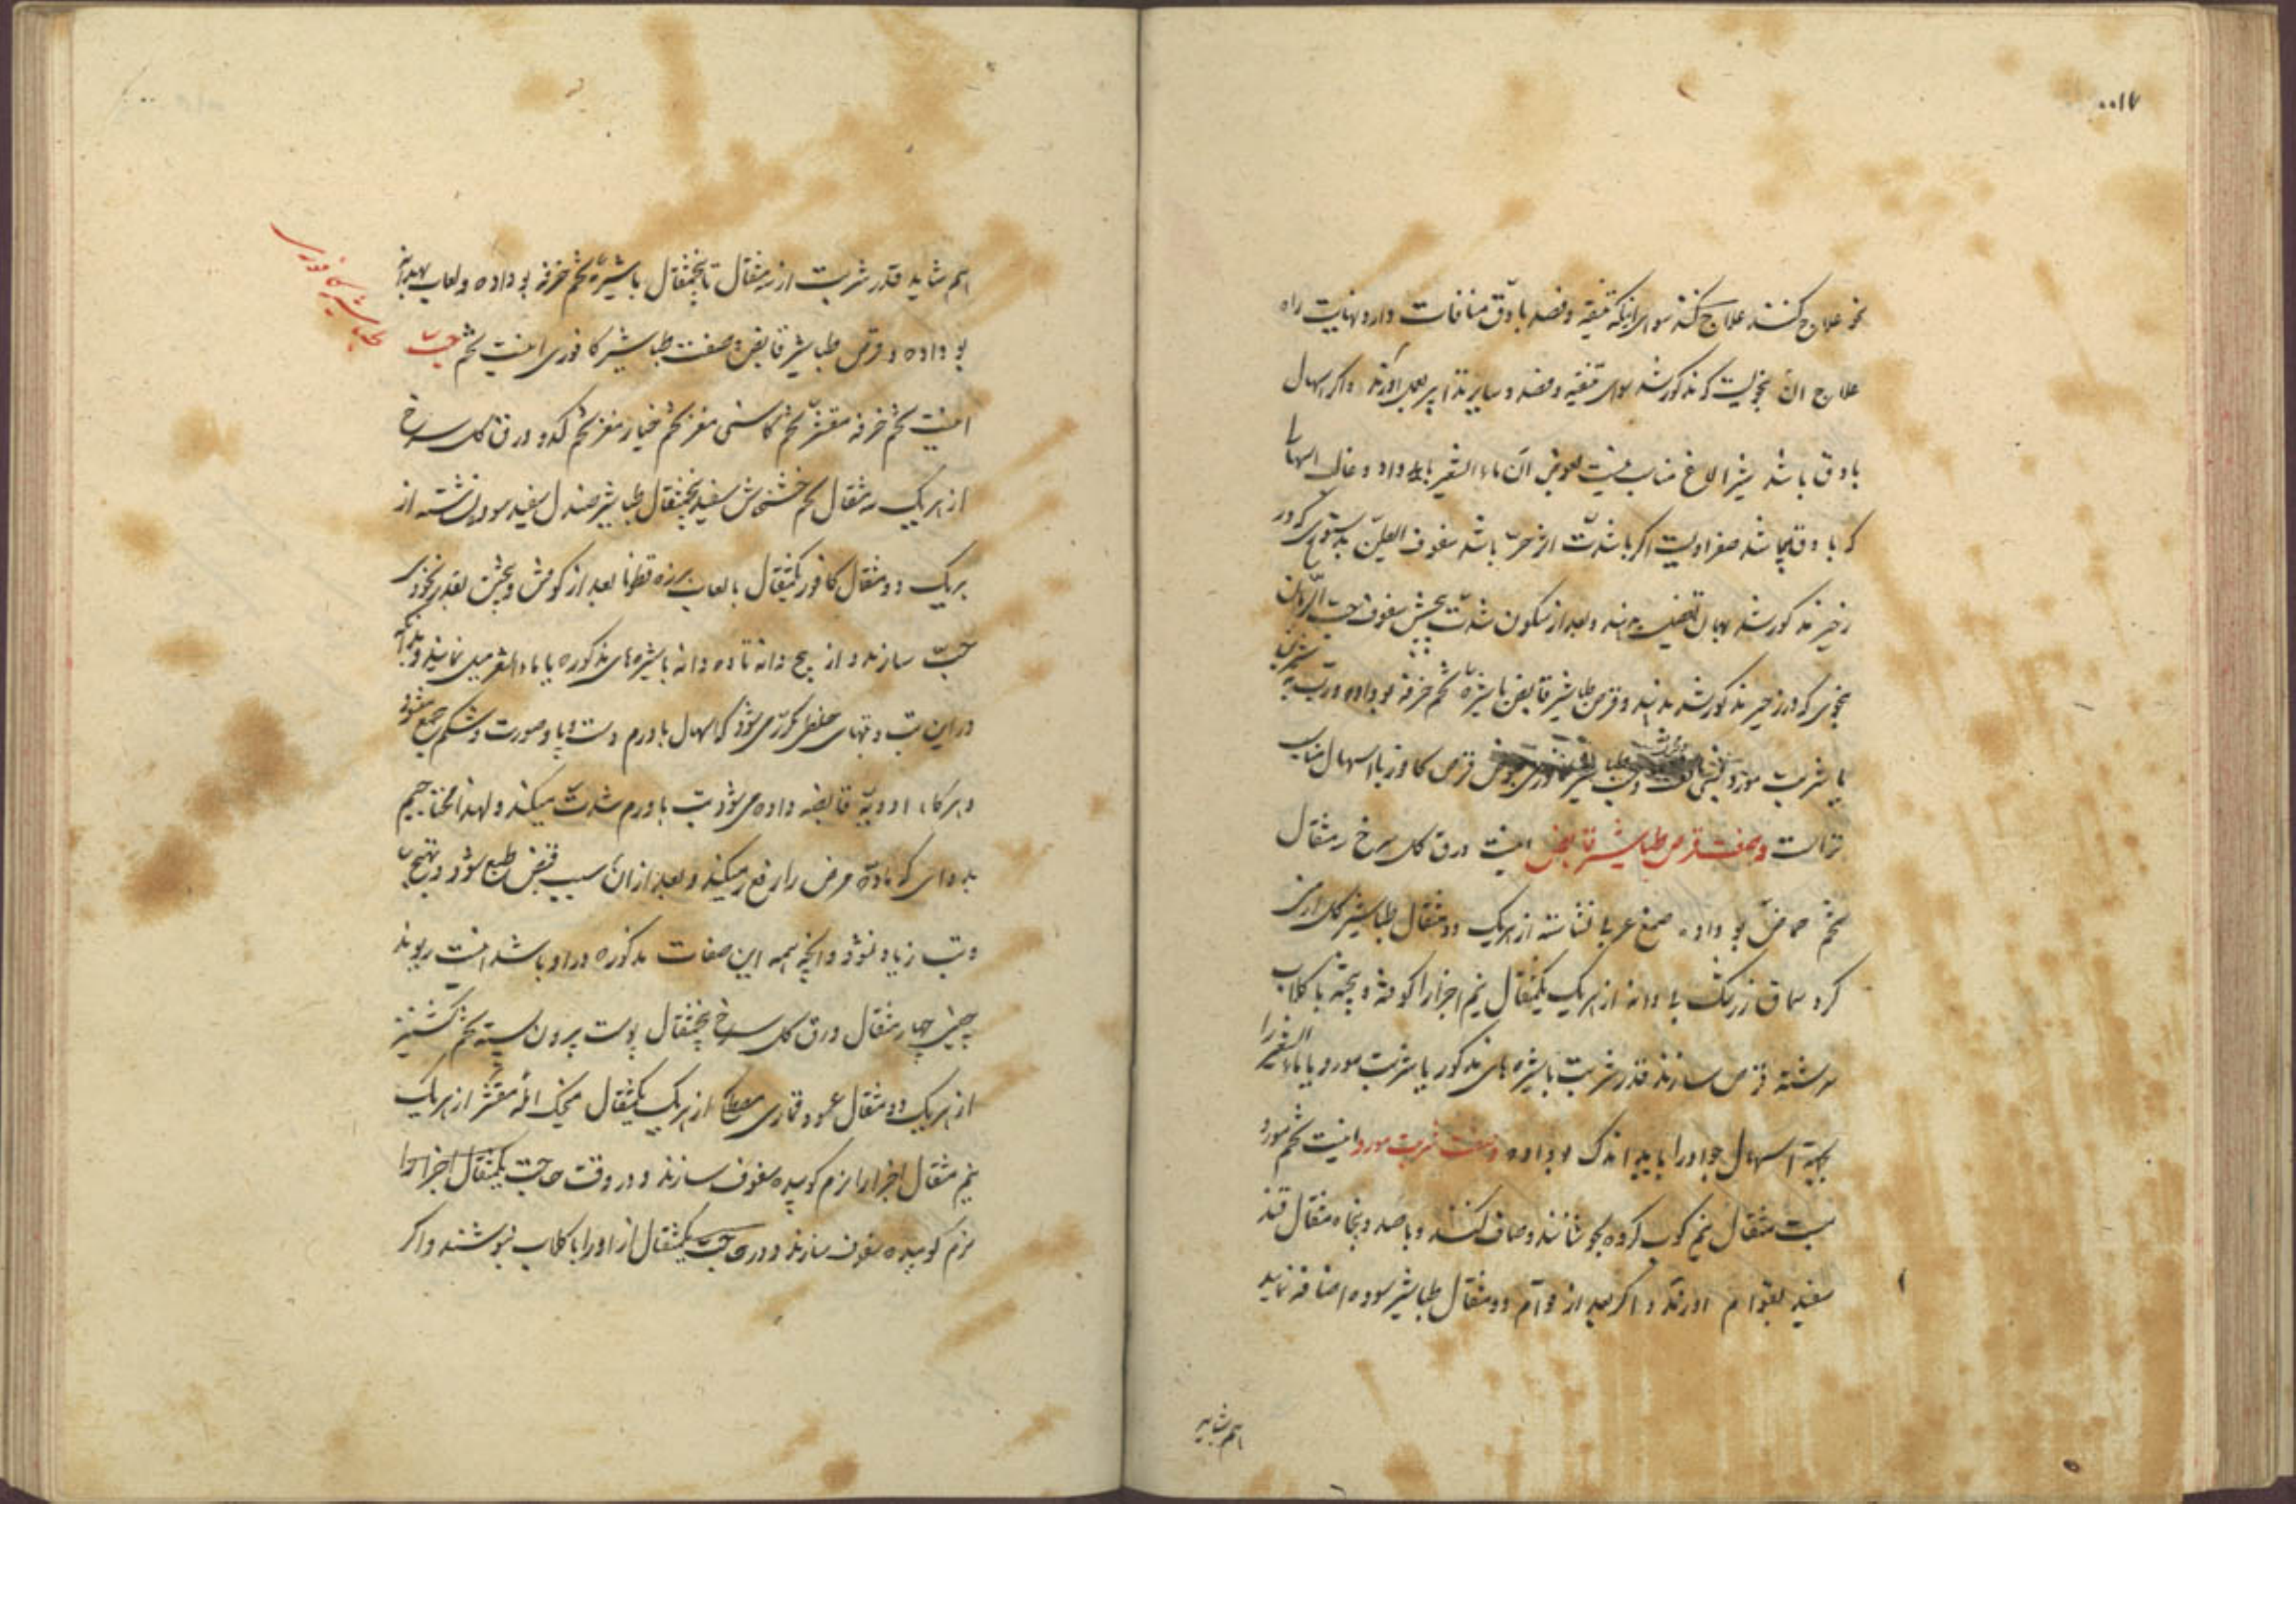 نحو علاج کنند علاج کنند سوای اینکه تنقیه و فصد با دق منافات دارد نهایت راه
علاج ان بنحویست که مذکور شد سوای تنقیه و فصد و سایر تدابیر بعمل آورند و اگر اسهال
با دق باشد شیر الاغ مناسب نیست بعوض آن ماء الشعیر باید داد و غالب اسهال
که با دق میباشد صفراویست اگر با شدت باشد سفوف الطین بدستوری که در
زحیر مذکور شد بهمان تفصیل بدهند و بعد از سکون شدت پیچش سفوف حب الرمان
بنحوی که در زحیر مذکور شد بدهند و قرص طباشیر قابض با شیره تخم خرفه بو داده و رب به شیرین
یا شربت مورد قرص کافور با اسهال مناسب
تر است و صفت قرص طباشیر قابض اینست ورق گل سرخ سه مثقال
تخم حماض بو داده صمغ عربی نشاسته از هریک دو مثقال طباشیر گل ارمنی
گرد سماق زرشک بی دانه از هریک یکمثقال نیم اجزا را کوفته و بیخته با گلاب
سرشته قرص سازند قدر شربت با شیره های مذکور یا شربت مورد یا ماء الشعیر را
بجهة اسهال باید اندک بو داده و صفت شربت مورد اینست تخم مورد
بیست مثقال نیم کوب کرده بجوشانند و صاف کنند و با صد و پنجاه مثقال قند
سفید بقوام اورند و اگر بعد از قوام دو مثقال طباشیر سوده اضافه نماید
هم شاید
هم شاید قدر شربت از سه مثقال تا پنجمثقال با شیره تخم خرفه بو داده و لعاب بهدانه
بو داده و قرص طباشیر قابض و صفت طباشیر کافوری اینست تخم حب
طباشیر کافوری
اینست تخم خرفه مقشر تخم کاسنی مغز تخم خیار مغز تخم کدو ورق گل سرخ
از هریک سه مثقال تخم خشخاش سفید پنجمثقال طباشیر صندل سفید سوده نشاسته از
هریک دو مثقال کافور یکمثقال با لعاب بزرقطونا بعد از کوفتن و بیختن بقدر نخودی
حب سازند و از پنج دانه تا ده دانه با شیره های مذکوره یا با ماء الشعیر میل نمایند و بدانکه
در این تب و تبهای خلطی مکرر می شود که اسهال با ورم دست و پا و صورت و شکم جمع میشود
و هرگاه ادویه قابضه داده می شود تب با ورم شدت میکند و لهذا محتاجیم
بدوای که ماده مرض را رفع میکند و بعد از ان سبب قبض طبع شود و تهیج
و تب زیاد نشود و آنچه همه این صفات مذکوره در او باشد اینست ریوند
چینی چهار مثقال ورق گل سرخ پنجمثقال پوست بیرون پسته تخم گشنیز
از هریک دو مثقال عود قماری از هریک یکمثقال مقشر از هریک
نیم مثقال اجزا را نرم کوبیده سفوف سازند و در وقت حاجت یکمثقال اجزا را
نرم کوبیده سفوف سازند و در حاجت یکمثقال از او را با گلاب بنوشند و اگر